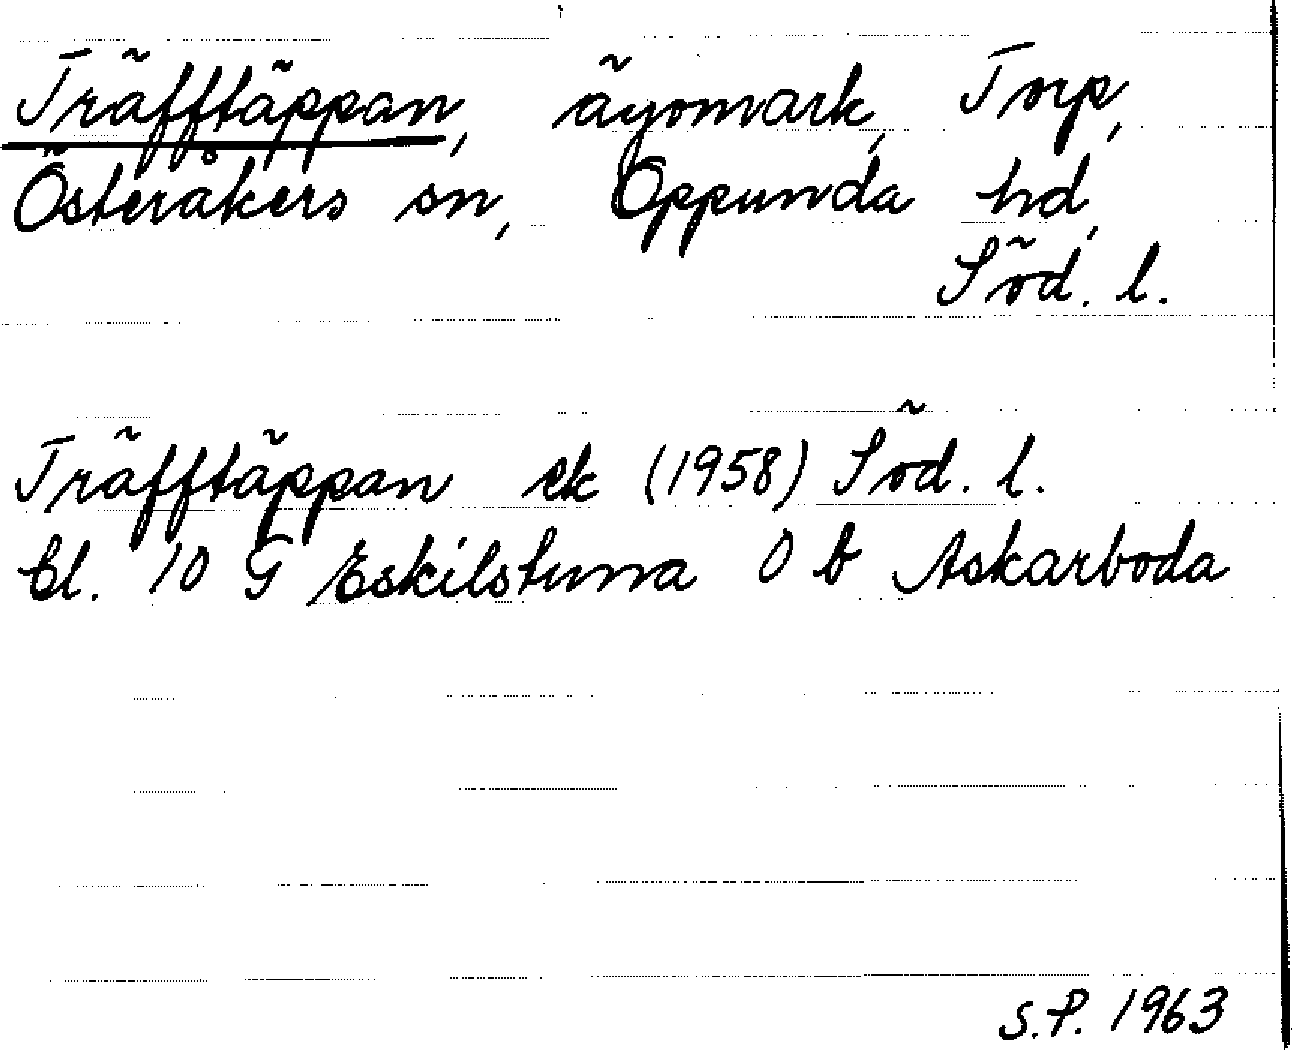 Träfftäppan, ägomark, Torp,
Österåkers sn, Oppunda hd,
Söd. l.
Träfftäppan ek (1958) Söd. l.
Bl. 10 G Eskilstuna 0 b Askarboda
S.P. 1963